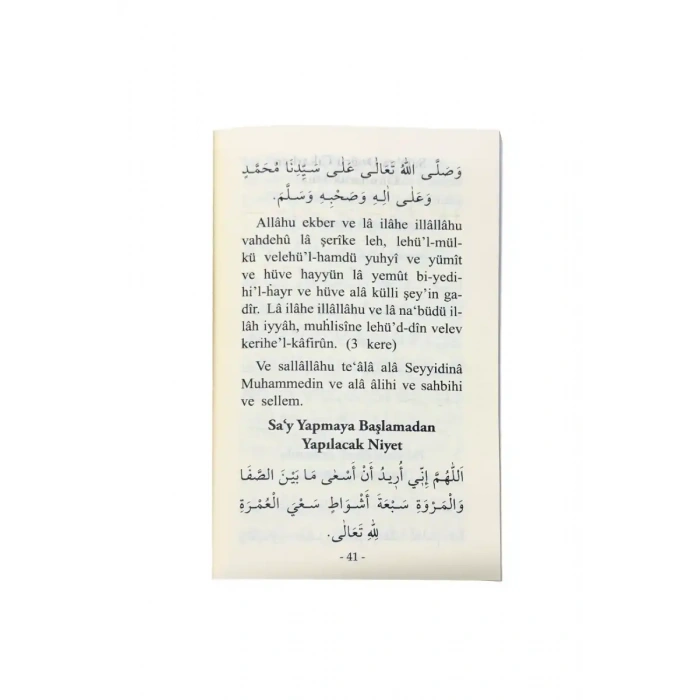 وَصَلَّى اللّٰهُ تَعَالٰى عَلٰى سَيِّدِنَا مُحَمَّدٍ
وَعَلٰى اٰلِهِ وَصَحْبِهِ وَسَلَّمَ.
Allâhu ekber ve lâ ilâhe illâllâhu
vahdehû lâ şerîke leh, lehü’l-mül-
kü velehü’l-hamdü yuhyî ve yümît
ve hüve hayyün lâ yemût bi-yedi-
hi’l-ḣayr ve hüve alâ külli şey’in ga-
dîr. Lâ ilâhe illâllâhu ve lâ na‘büdü il-
lâh iyyâh, muḣlisîne lehü’d-dîn velev
kerihe’l-kâfirûn. (3 kere)
Ve sallâllâhu te‘âlâ alâ Seyyidinâ
Muhammedin ve alâ âlihi ve sahbihi
ve sellem.
Sa‘y Yapmaya Başlamadan
Yapılacak Niyet
اَللّٰهُمَّ إِنِّي أُرِيدُ أَنْ أَسْعٰى مَا بَيْنَ الصَّفَا
وَالْمَرْوَةِ سَبْعَةَ أَشْوَاطٍ سَعْيَ الْعُمْرَةِ
لِلّٰهِ تَعَالٰى.
- 41 -